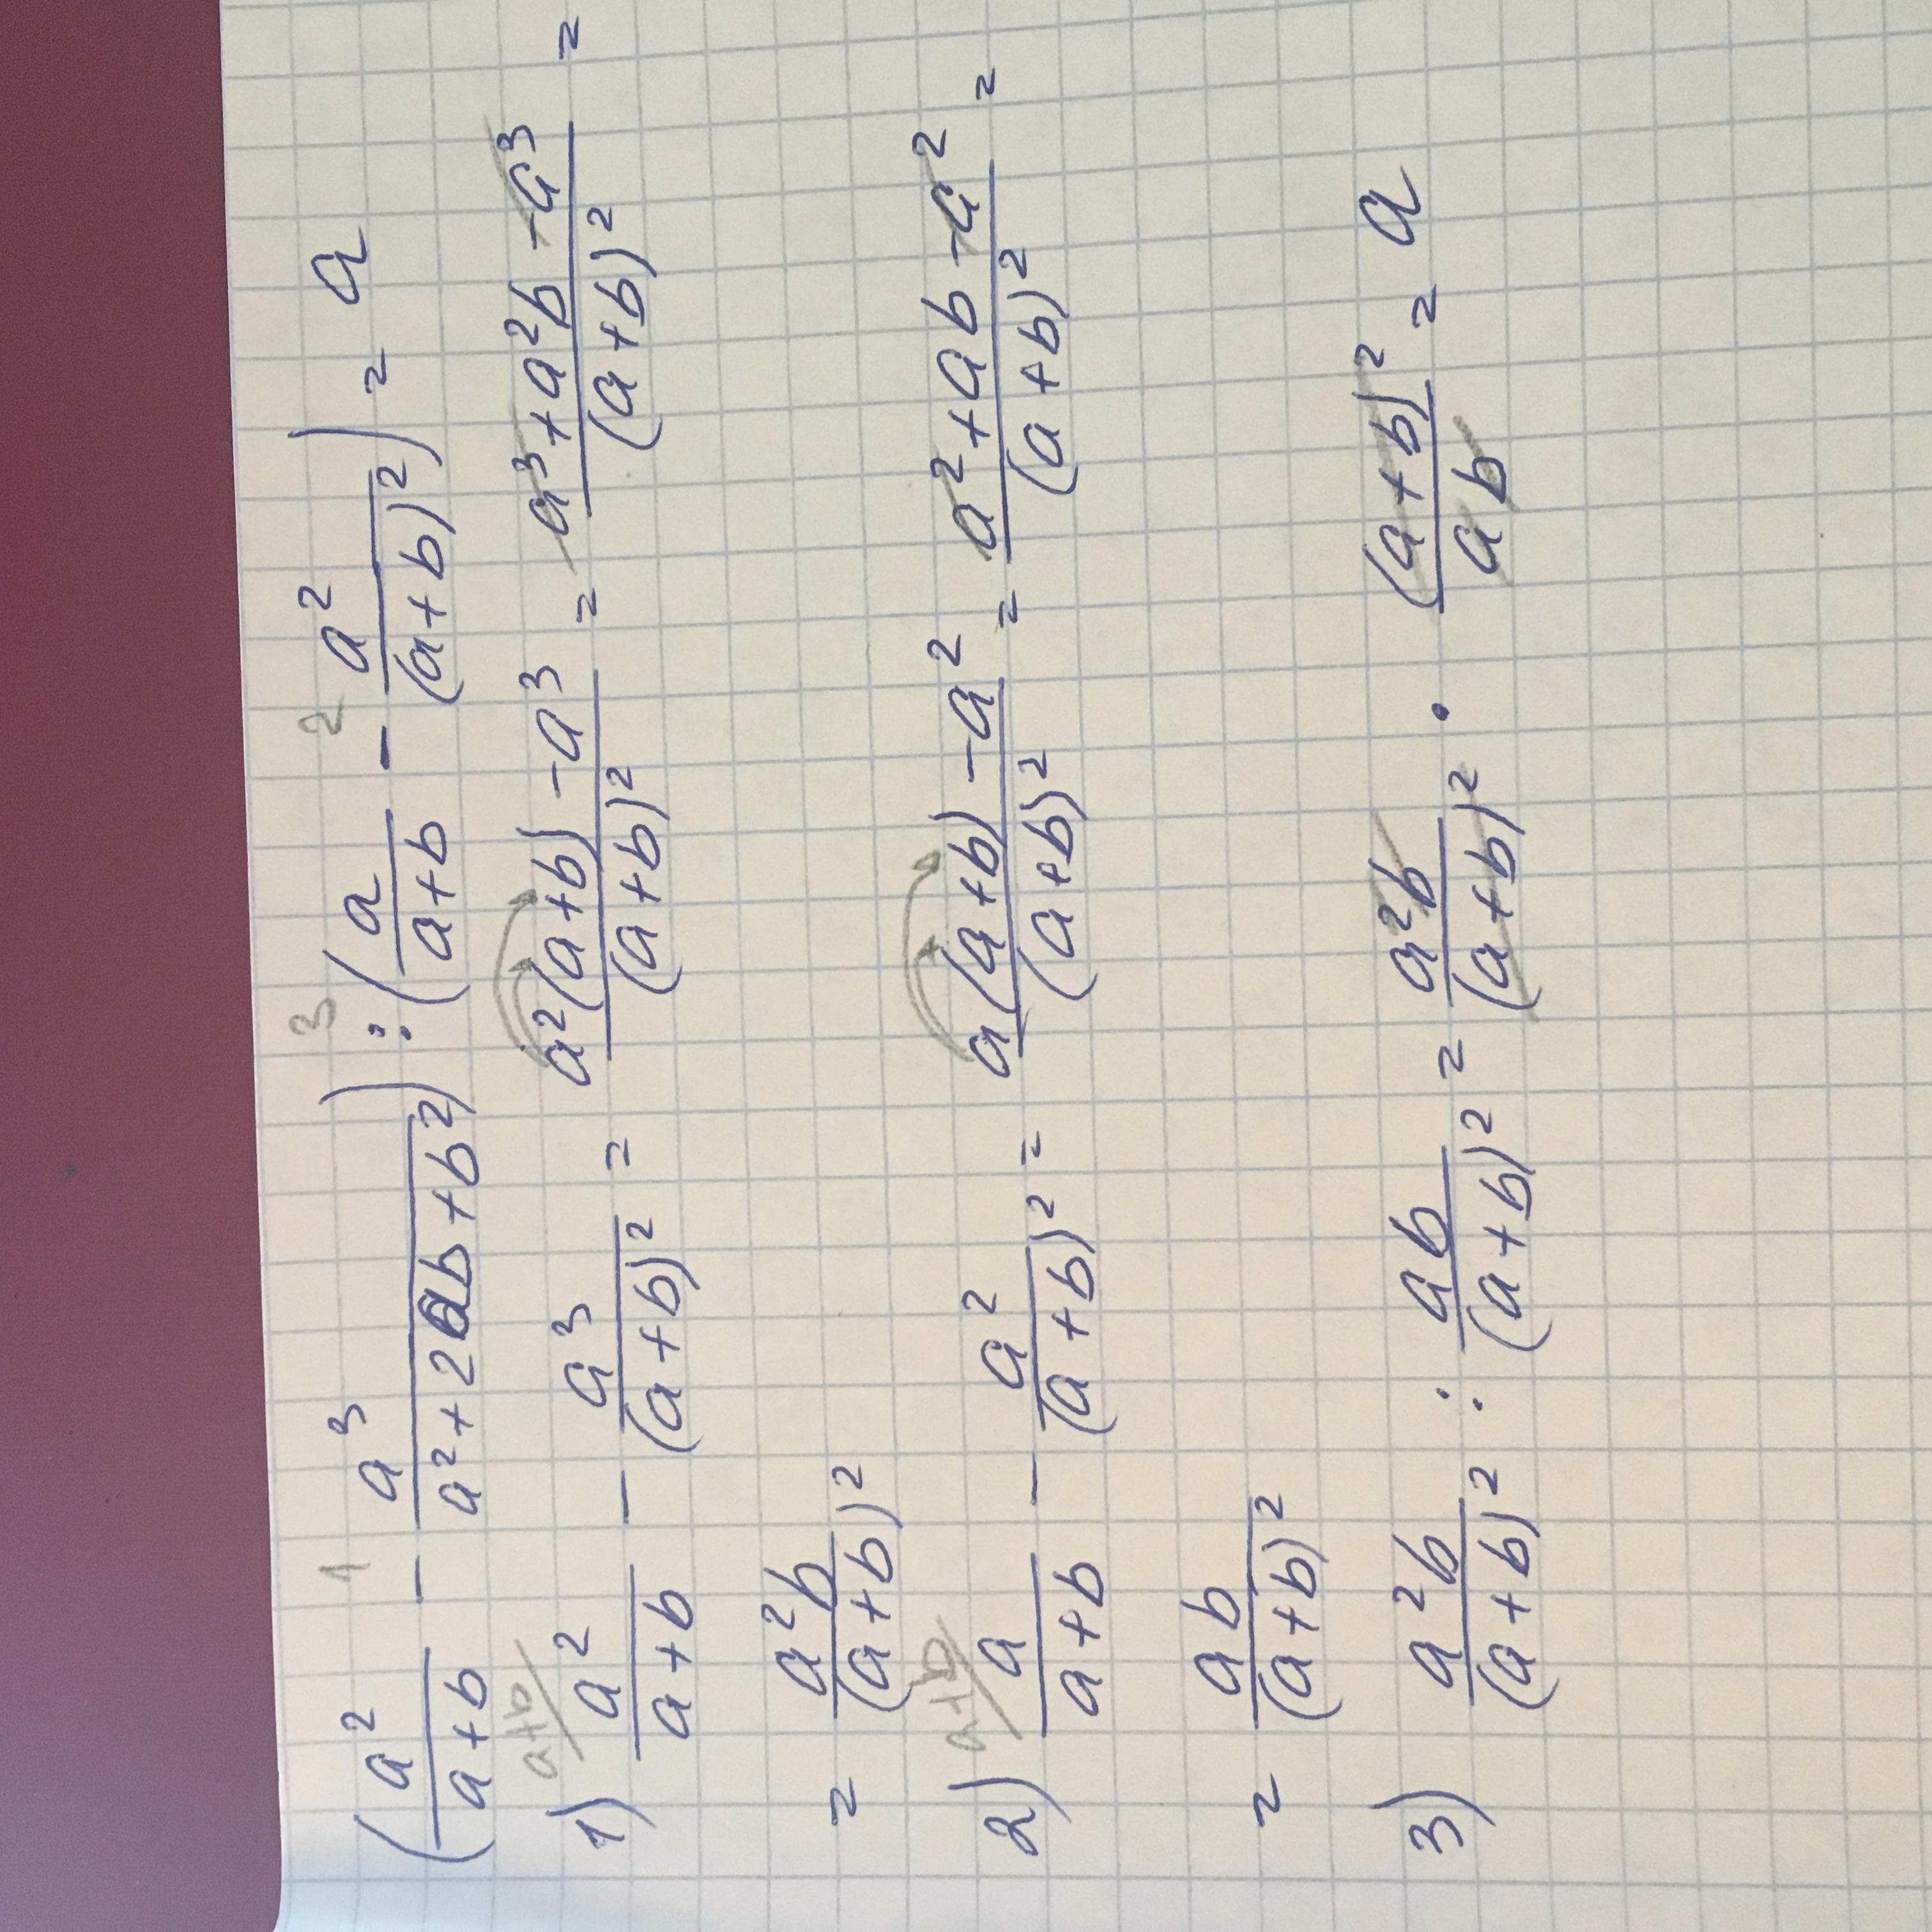 (a²/(a+b) - a³/(a²+2ab+b²)) : (a/(a+b) - a²/(a+b)²) = a
1 3 2
a+b
1) a²/(a+b) - a³/(a+b)² = (a²(a+b)-a³)/(a+b)² = (a³+a²b-a³)/(a+b)² =
= a²b/(a+b)²
a+b
2) a/(a+b) - a²/(a+b)² = (a(a+b)-a²)/(a+b)² = (a²+ab-a²)/(a+b)² =
= ab/(a+b)²
3) a²b/(a+b)² : ab/(a+b)² = a²b/(a+b)² · (a+b)²/ab = a